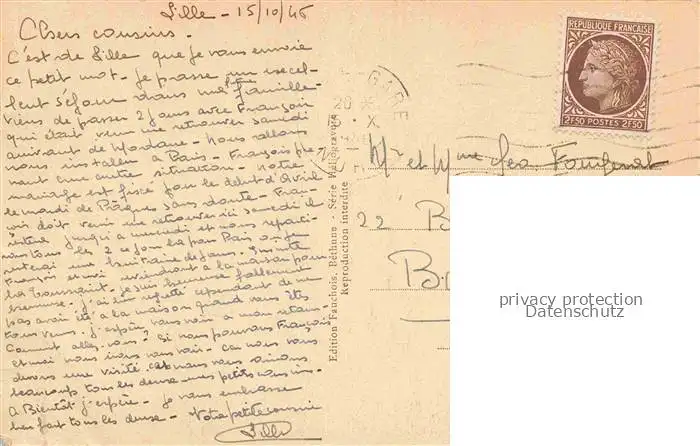 Lille - 15/10/46
Chers cousins.
C'est de Lille que je vous envoie
ce petit mot - je passe un excel-
lent séjour dans ma famille.
Viens de passer 2 jours avec François
qui était venu me retrouver samedi
arrivant de Mordane - nous allons
nous installer à Paris - François pre-
nant une autre situation - notre
mariage est fixé pour le début d'Avril
le mardi de Pâques sans doute - Fran-
çois doit venir me retrouver ici samedi il
jusqu'à mercredi et nous
tous les 2 ce jour là pour Paris où je
resterai une huitaine de jours -
François et moi à la maison pour
la Toussaint. je suis heureuse follement
heureuse - j'ai bien regretté cependant de ne
pas avoir été à la maison quand vous êtes
tous venus - j'espère vous voir à mon retour -
Comment allez-vous? Si nous pouvons François
et moi nous irons vous voir - car nous vous
devons une visite et nous vous aimons
beaucoup tous les deux - mes petits cousins -
A Bientôt j'espère - je vous embrasse
bien fort tous les deux - Votre petite cousine
Lille
Edition Fauchois, Béthune - Série Héliogravure
Reproduction interdite
GARE
20
X
REPUBLIQUE FRANÇAISE
2F50 POSTES 2F50
Mr et Mme
22 B
B
privacy protection
Datenschutz